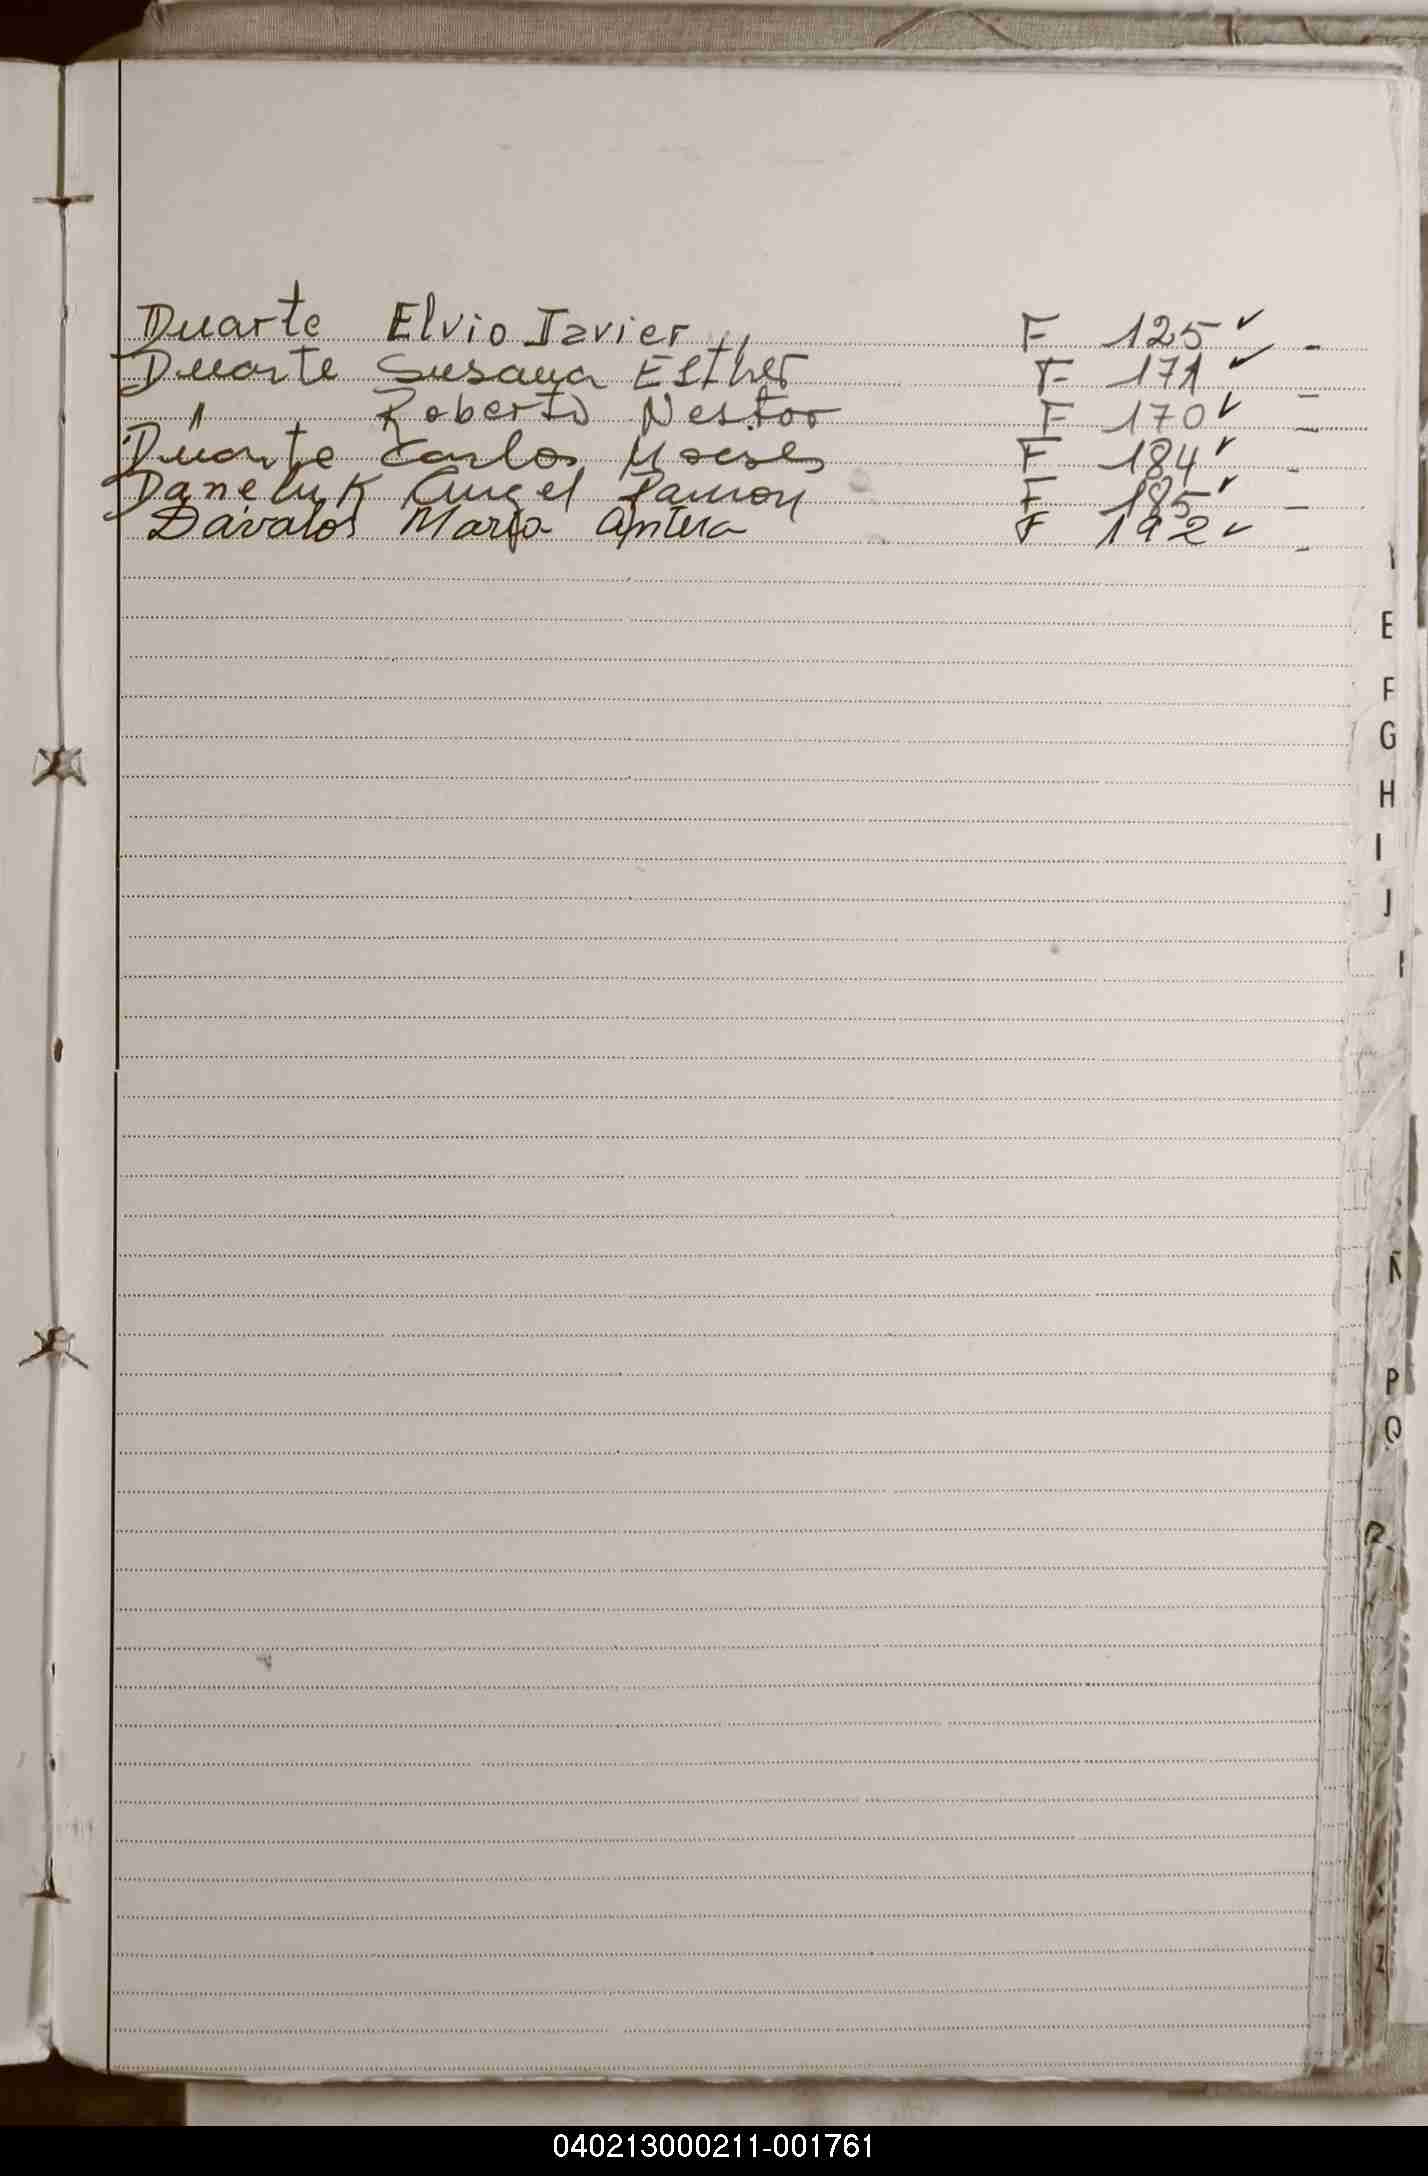 Duarte Elvio Javier F 125 ✓ -
Duarte Susana Esther F 171 ✓ -
" Roberto Nestor F 170 ✓ -
Duarte Carlos Moises F 184 ✓ -
Daneluk Angel Ramon F 185 ✓ -
Davalos Maria Antera F 192 ✓ -
E
F
G
H
I
J
Ñ
P
Q
R
Z
040213000211-001761